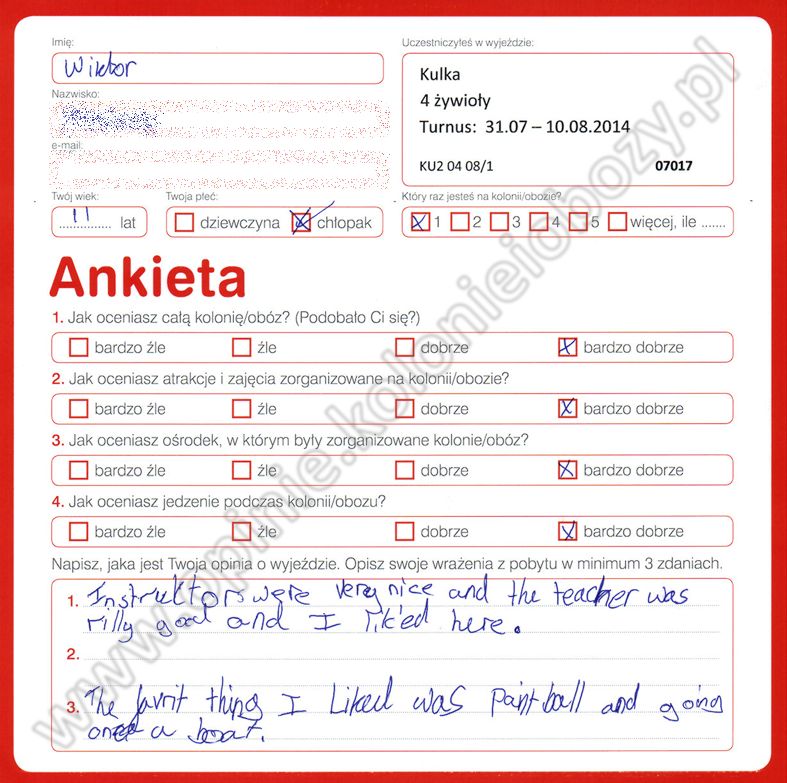 Imię:
Wiktor
Nazwisko:
e-mail:
Twój wiek:
11 lat
Twoja płeć:
dziewczyna chłopak
Uczestniczyłeś w wyjeździe:
Kulka
4 żywioły
Turnus: 31.07 – 10.08.2014
KU2 04 08/1 07017
Który raz jesteś na kolonii/obozie?
1 2 3 4 5 więcej, ile .......
Ankieta
1. Jak oceniasz całą kolonię/obóz? (Podobało Ci się?)
bardzo źle źle dobrze bardzo dobrze
2. Jak oceniasz atrakcje i zajęcia zorganizowane na kolonii/obozie?
bardzo źle źle dobrze bardzo dobrze
3. Jak oceniasz ośrodek, w którym były zorganizowane kolonie/obóz?
bardzo źle źle dobrze bardzo dobrze
4. Jak oceniasz jedzenie podczas kolonii/obozu?
bardzo źle źle dobrze bardzo dobrze
Napisz, jaka jest Twoja opinia o wyjeździe. Opisz swoje wrażenia z pobytu w minimum 3 zdaniach.
1. Instruktors were very nice and the teacher was
rilly good and I lik'ed here.
2.
3. The favrit thing I Liked was Paintball and going
on a boat.
www.opinie.kolonieiobozy.pl